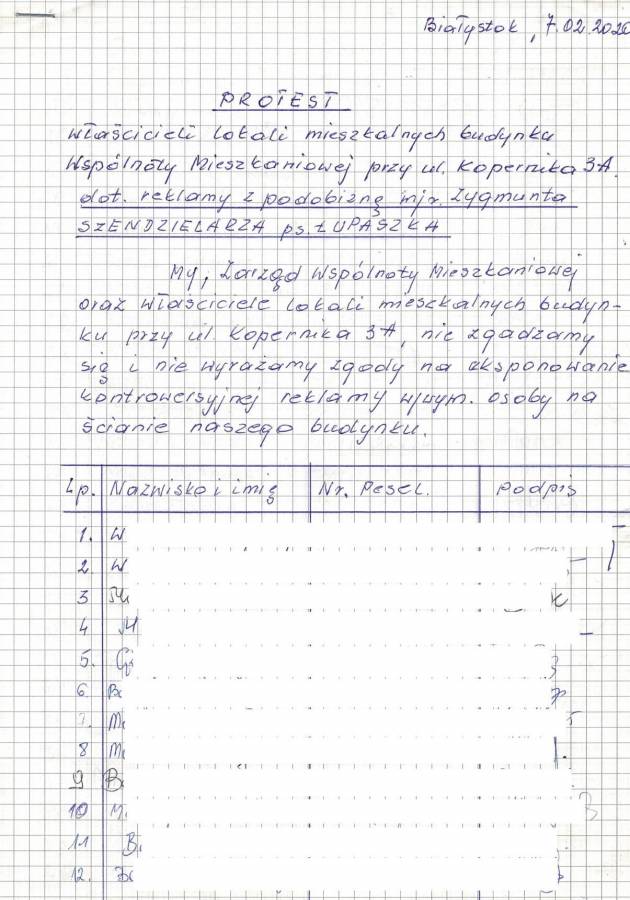 Białystok, 7.02.2020
PROTEST
właścicieli lokali mieszkalnych budynku
Wspólnoty Mieszkaniowej przy ul. Kopernika 3A.
dot. reklamy z podobizną mjr. Zygmunta
SZENDZIELARZA ps. ŁUPASZKA
My, Zarząd Wspólnoty Mieszkaniowej
oraz właściciele lokali mieszkalnych budyn-
ku przy ul Kopernika 3A, nie zgadzamy
się i nie wyrażamy zgody na eksponowanie
kontrowersyjnej reklamy w/wym. osoby na
ścianie naszego budynku.
Lp. Nazwisko i imię Nr. Pesel. Podpis
1. W
2 W
3
4 M
5.
6
7.
8
9
10 M.
11
12.